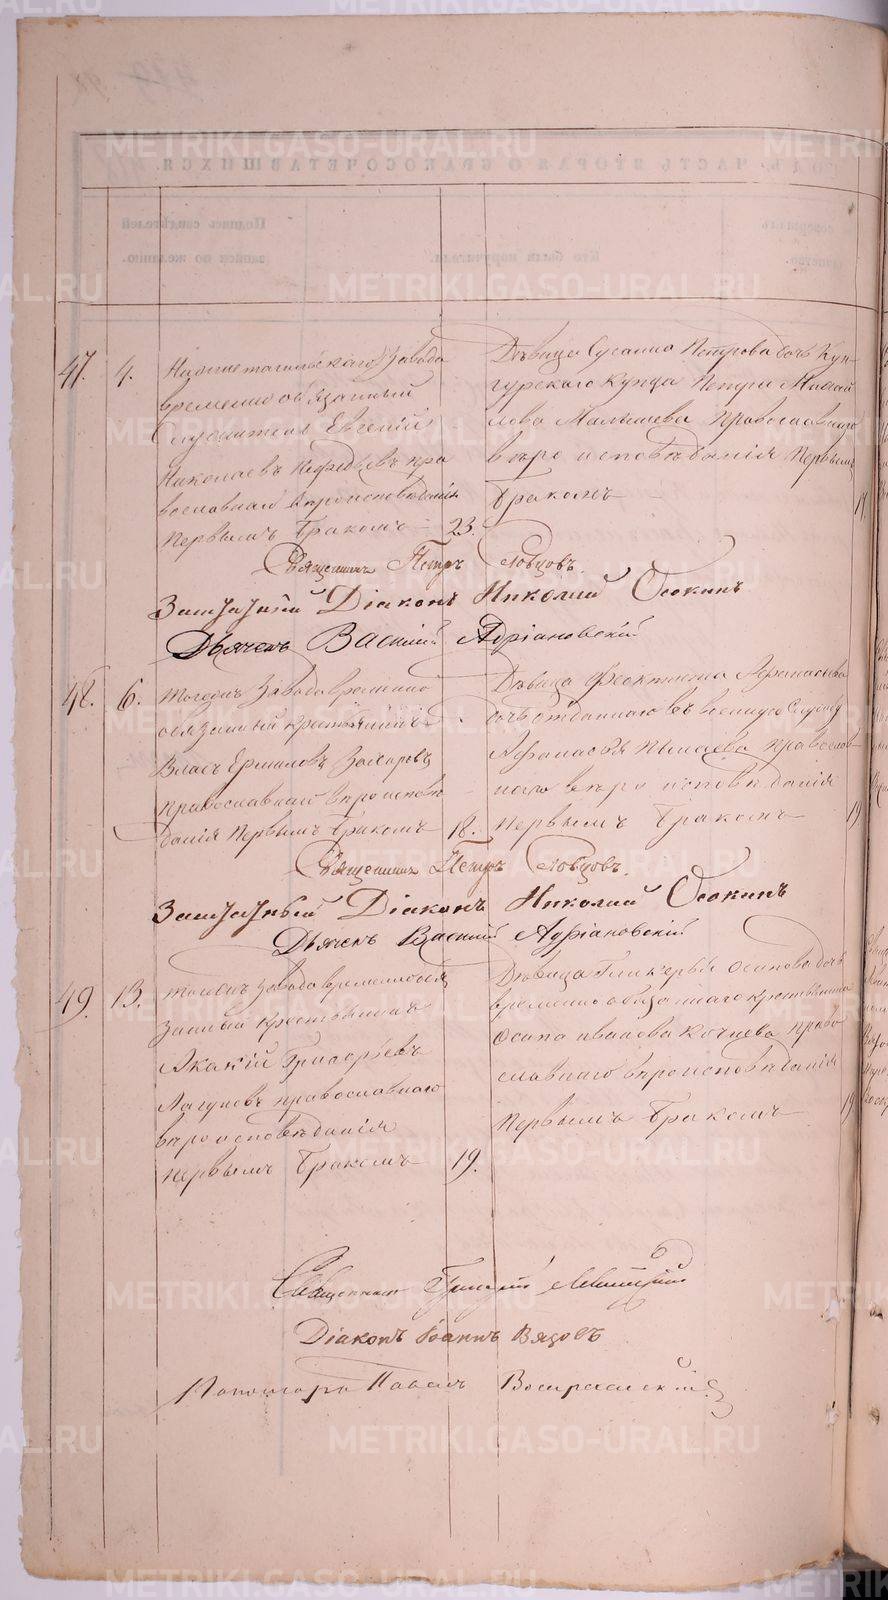 47. 4. Нижнетагильскаго Завода
временно обязанный
Служитель Евгений
Николаевъ Нефедьевъ пра
вославнаго вероисповѣданія
Первымъ Бракомъ 23.
Дѣвица Сусанна Петрова дочь Кун-
гурскаго Купца Петра Михай
лова Малышева Православнаго
вѣро исповѣданія Первымъ
Бракомъ
Священникъ Петръ Словцовъ.
Заштатный Діаконъ Николай Осокинъ
Дьячекъ Василій Адріановскій
48. 6. Тогожъ Завода временно
обязанный крестьянинъ
Власъ Ермиловъ Захаровъ
православнаго вѣроисповѣ
данія Первымъ Бракомъ 18.
Дѣвица Феоктиста Афанасьева
дочь отданнаго въ военную Службу
Афанасья Православ
наго вѣро исповѣданія
Первымъ Бракомъ 19
Священникъ Петръ Словцовъ.
Заштатный Діаконъ Николай Осокинъ
Дьячекъ Василій Адріановскій
49. 13. Тогожъ Завода временнообя
занный крестьянинъ
Акакій Григорьевъ
Лагуновъ православнаго
вѣроисповѣданія
Первымъ Бракомъ 19.
Дѣвица Гликерья Осипова дочь
временно обязаннаго крестьянина
Осипа Иванова Кочнева право
славнаго вѣроисповѣданія
Первымъ Бракомъ 19
Священникъ Григорій Левитскій
Діаконъ Іоаннъ Вядовъ
Пономарь Павелъ Воскресенскій
METRIKI.GASO-URAL.RU